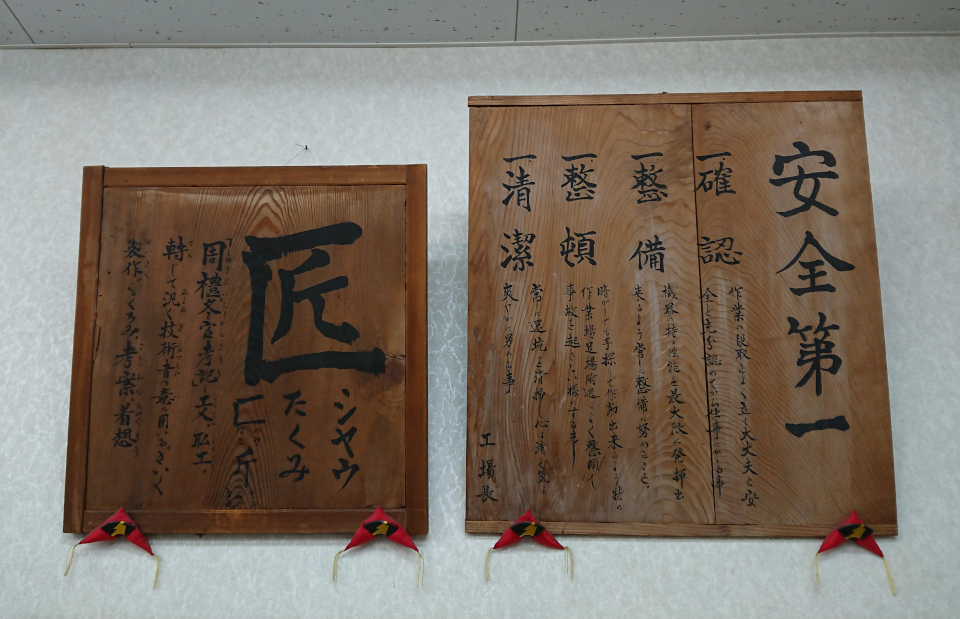 安全第一
一確認
作業の段取をよく立て大丈夫と安
全を充分認めてから仕事にかゝる事
一整備
機界の持つ性能を最大限に発揮出
来るよう常に整備に努めること
一整頓
時がしても手探しで作動出来るよう特に
作業場足場附近はよく整頓して
事故を起さない様にする事
一清潔
常に環境を清掃し心は清く気は
爽やかに努める事
工場長
匠
シヤウ
たくみ
匚 斤
「周禮冬官考記」工文 彫工
轉して汎く技術者の意に用ふ
製作 考案 着想